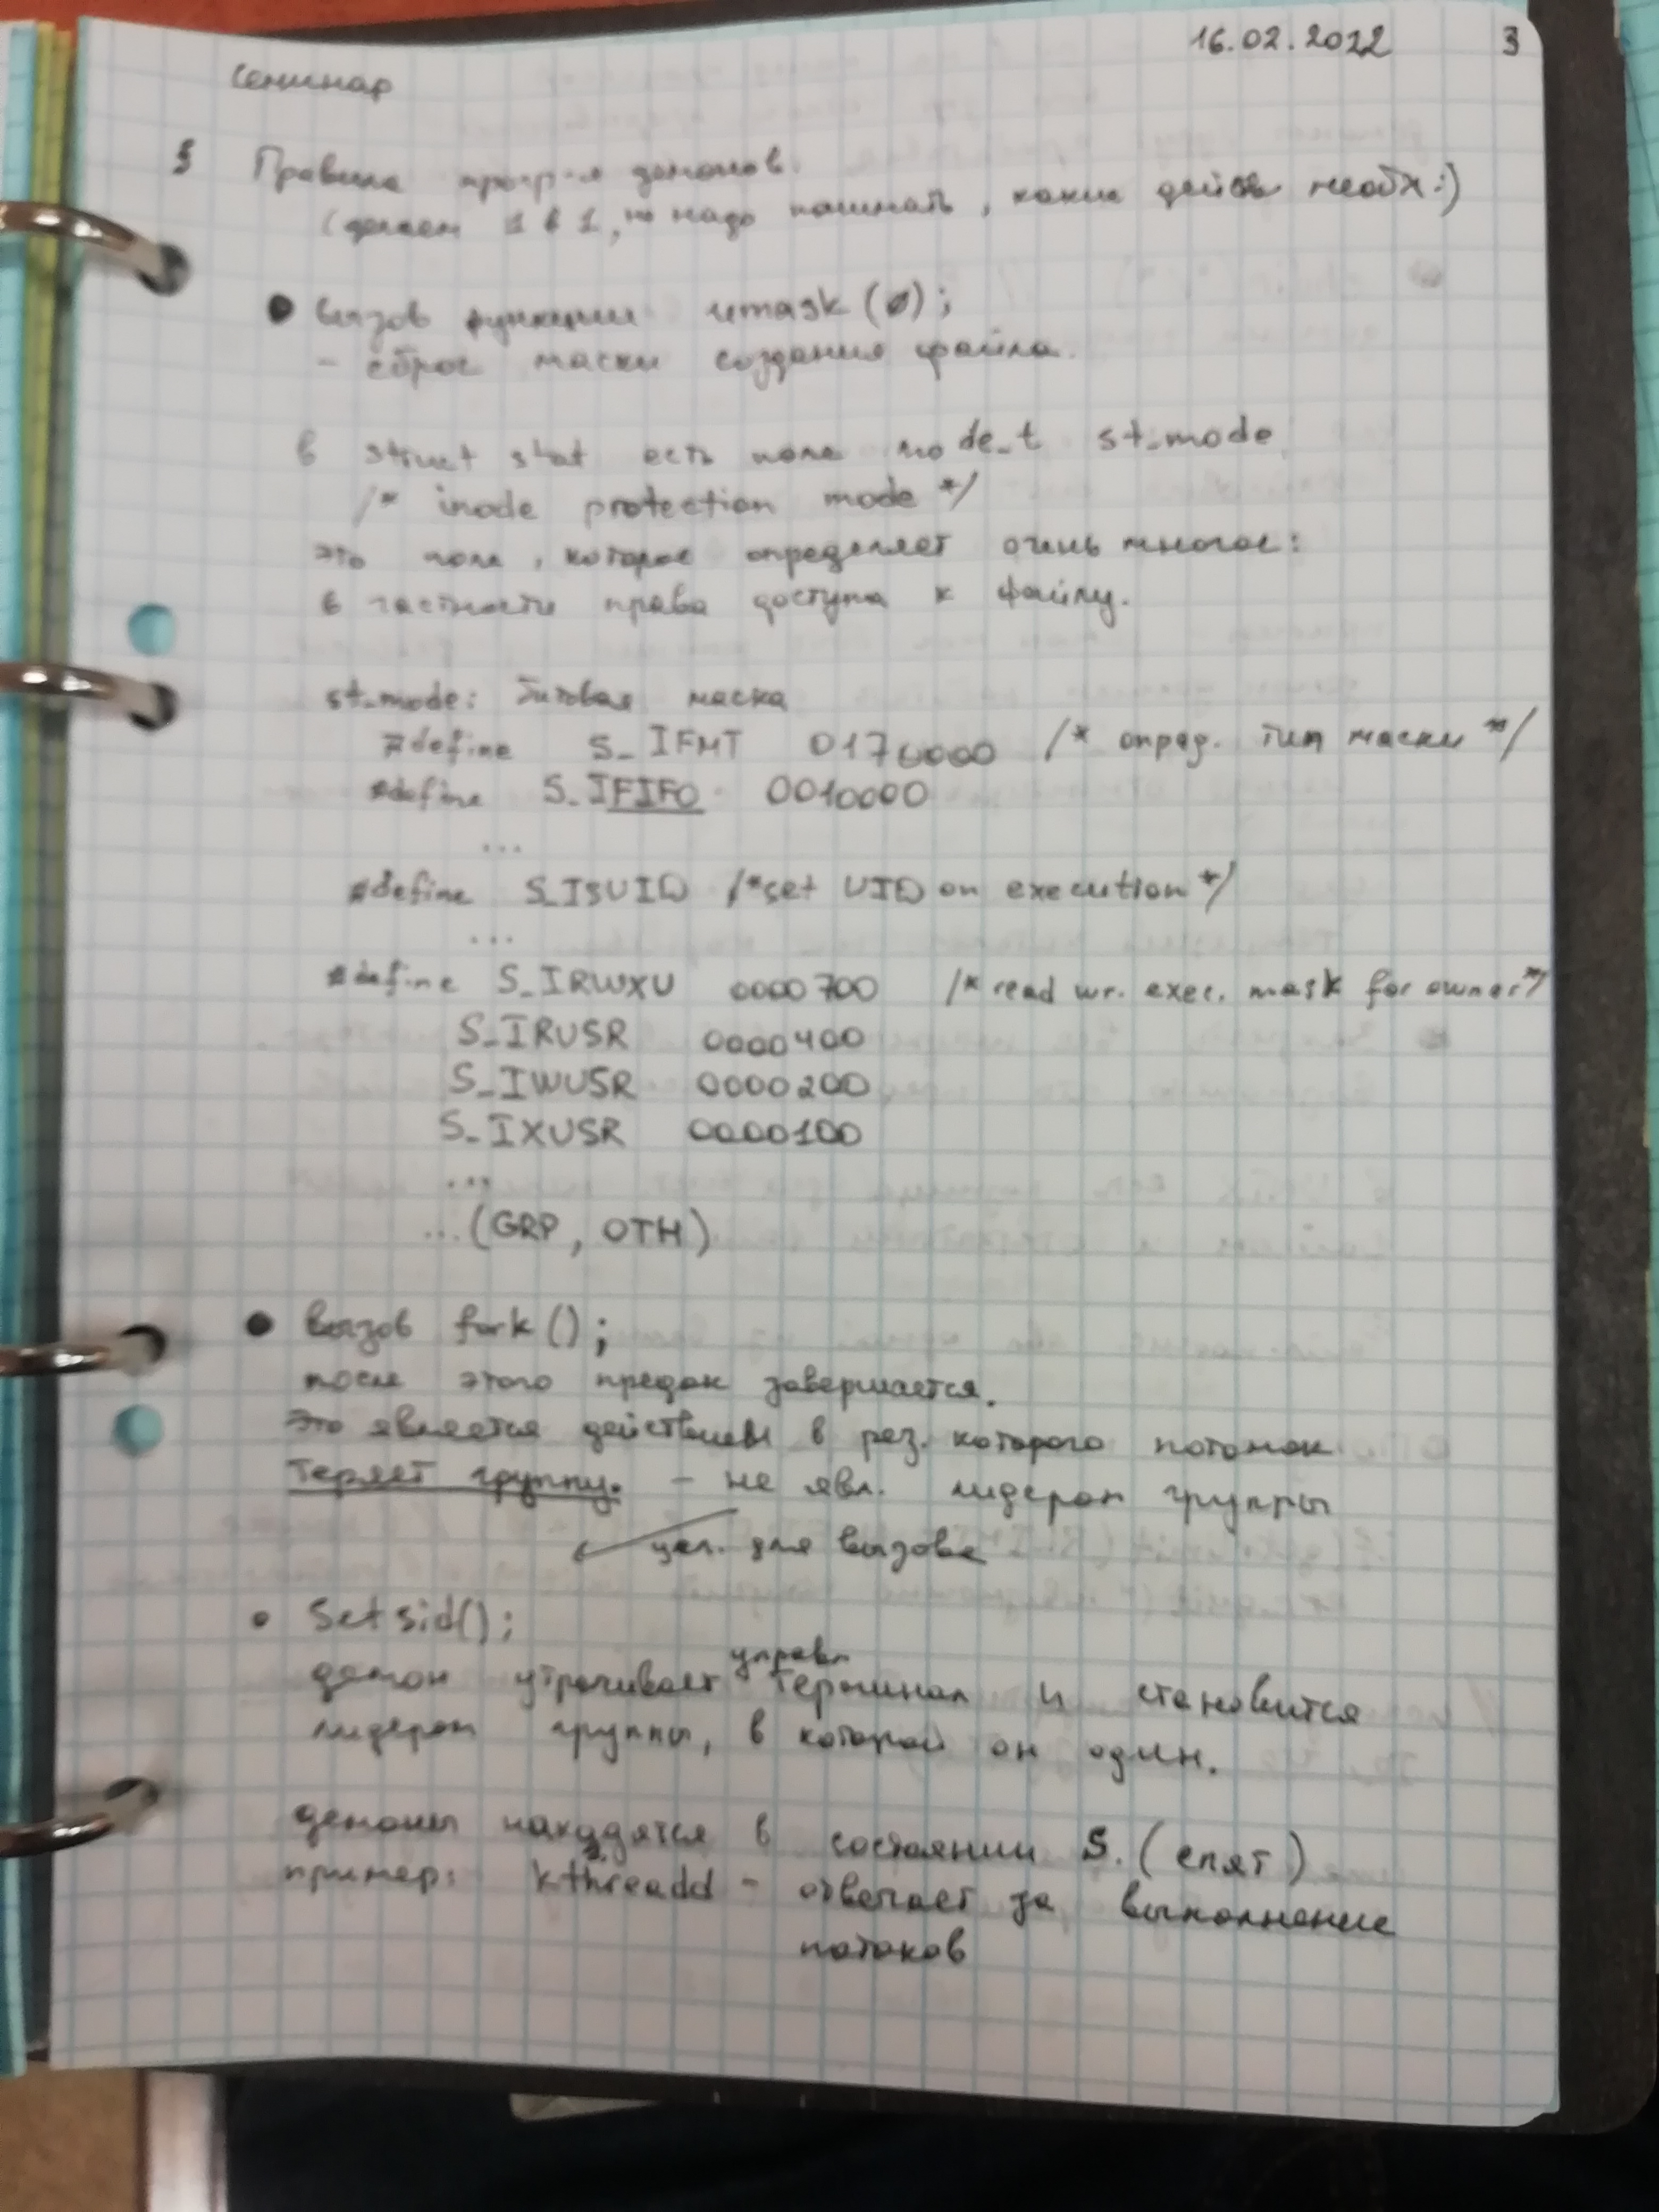 16.02.2022 3
Семинар
§ Правила прогр-я демонов.
(делаем 1 в 1, но надо понимать, какие действ необх:)
● Вызов функции umask(0);
- сброс маски создания файла.
в struct stat есть поле mode_t st_mode
/* inode protection mode */
это поле, которое определяет очень многое:
в частности права доступа к файлу.
st_mode: битовая маска
#define S_IFMT 0176000 /* опред. тип маски */
#define S_IFIFO 0010000
...
#define S_ISUID /*set UID on execution*/
...
#define S_IRWXU 0000700 /* read wr. exec. mask for owner*/
S_IRUSR 0000400
S_IWUSR 0000200
S_IXUSR 0000100
...
...(GRP, OTH)
● Вызов fork();
после этого предок завершается.
Это является действием в рез. которого потомок
теряет группу. - не явл. лидером группы
для вызова
● Setsid();
управл
демон утрачивает терминал и становится
лидером группы, в которой он один.
демоны находятся в состоянии S. (спят)
пример: kthreadd - отвечает за выполнение
потоков